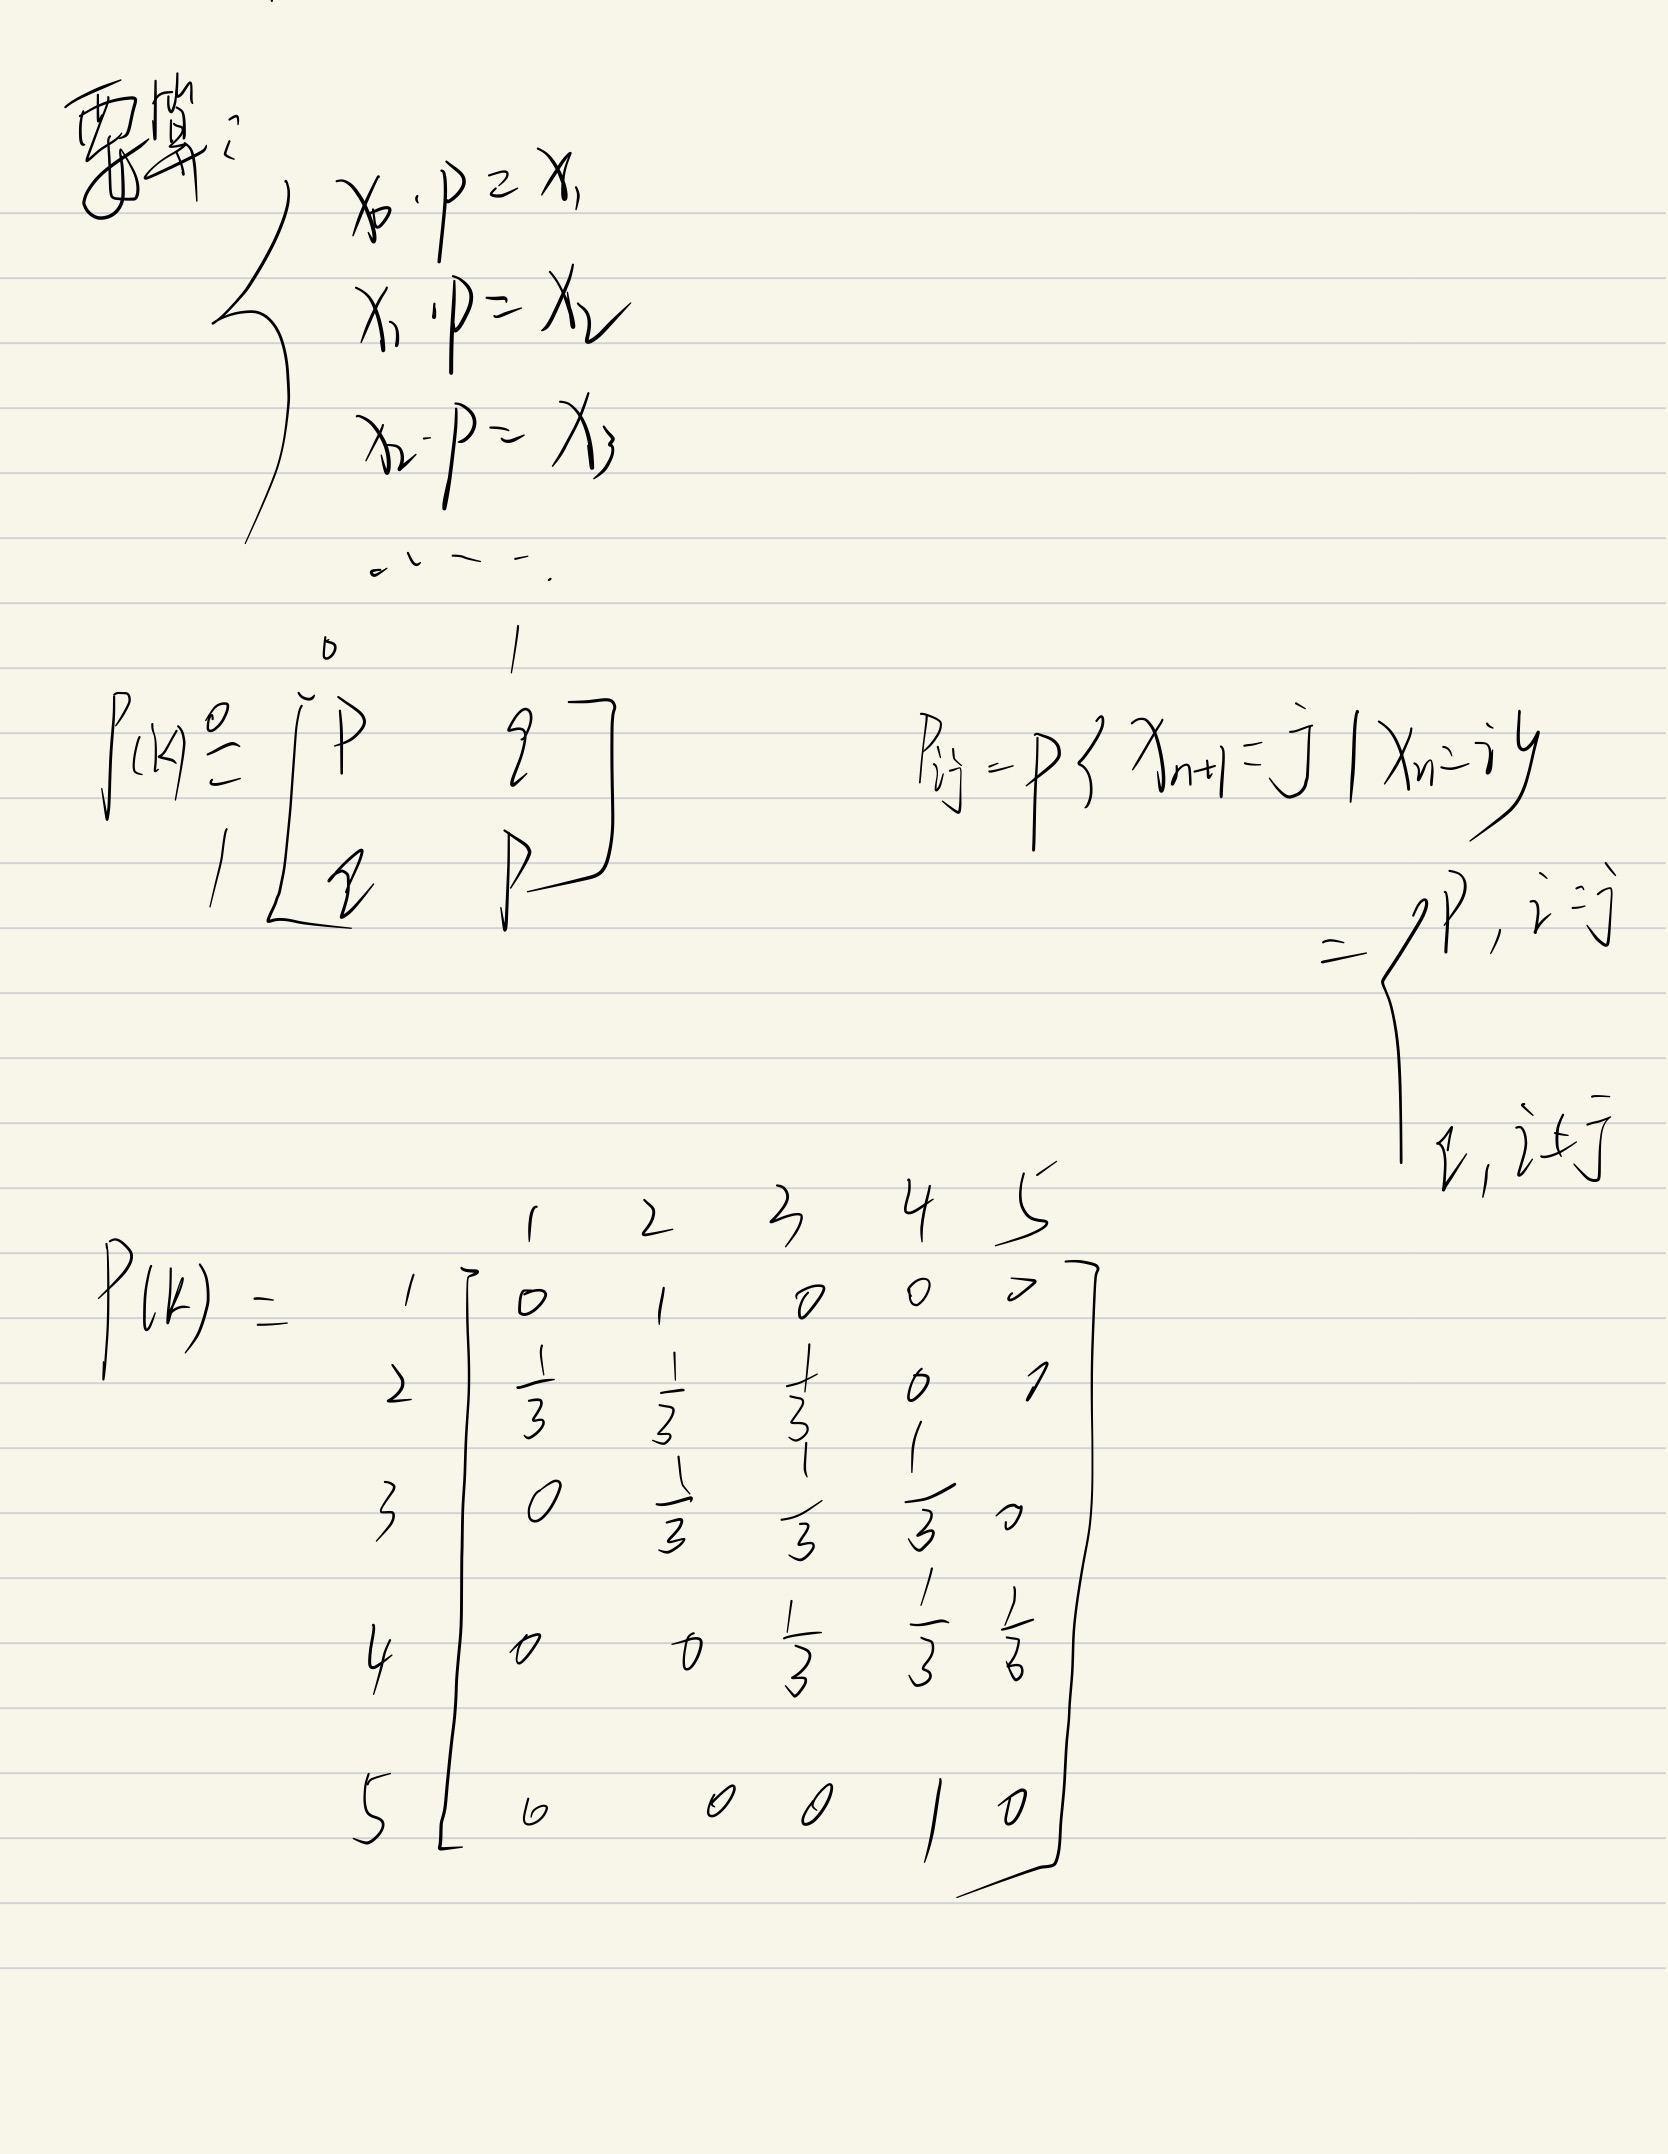 要算:
x₀·P=x₁
x₁·P=x₂
x₂·P=x₃
.....
0 1
P(k)= 0 [ P q ]
1 [ q P ]
Pij=P{Xn+1=j|Xn=i}
= { P, i=j
q, i≠j
1 2 3 4 5
P(k)= 1 [ 0 1 0 0 0 ]
2 [ 1/3 1/3 1/3 0 0 ]
3 [ 0 1/3 1/3 1/3 0 ]
4 [ 0 0 1/3 1/3 1/3 ]
5 [ 0 0 0 1 0 ]